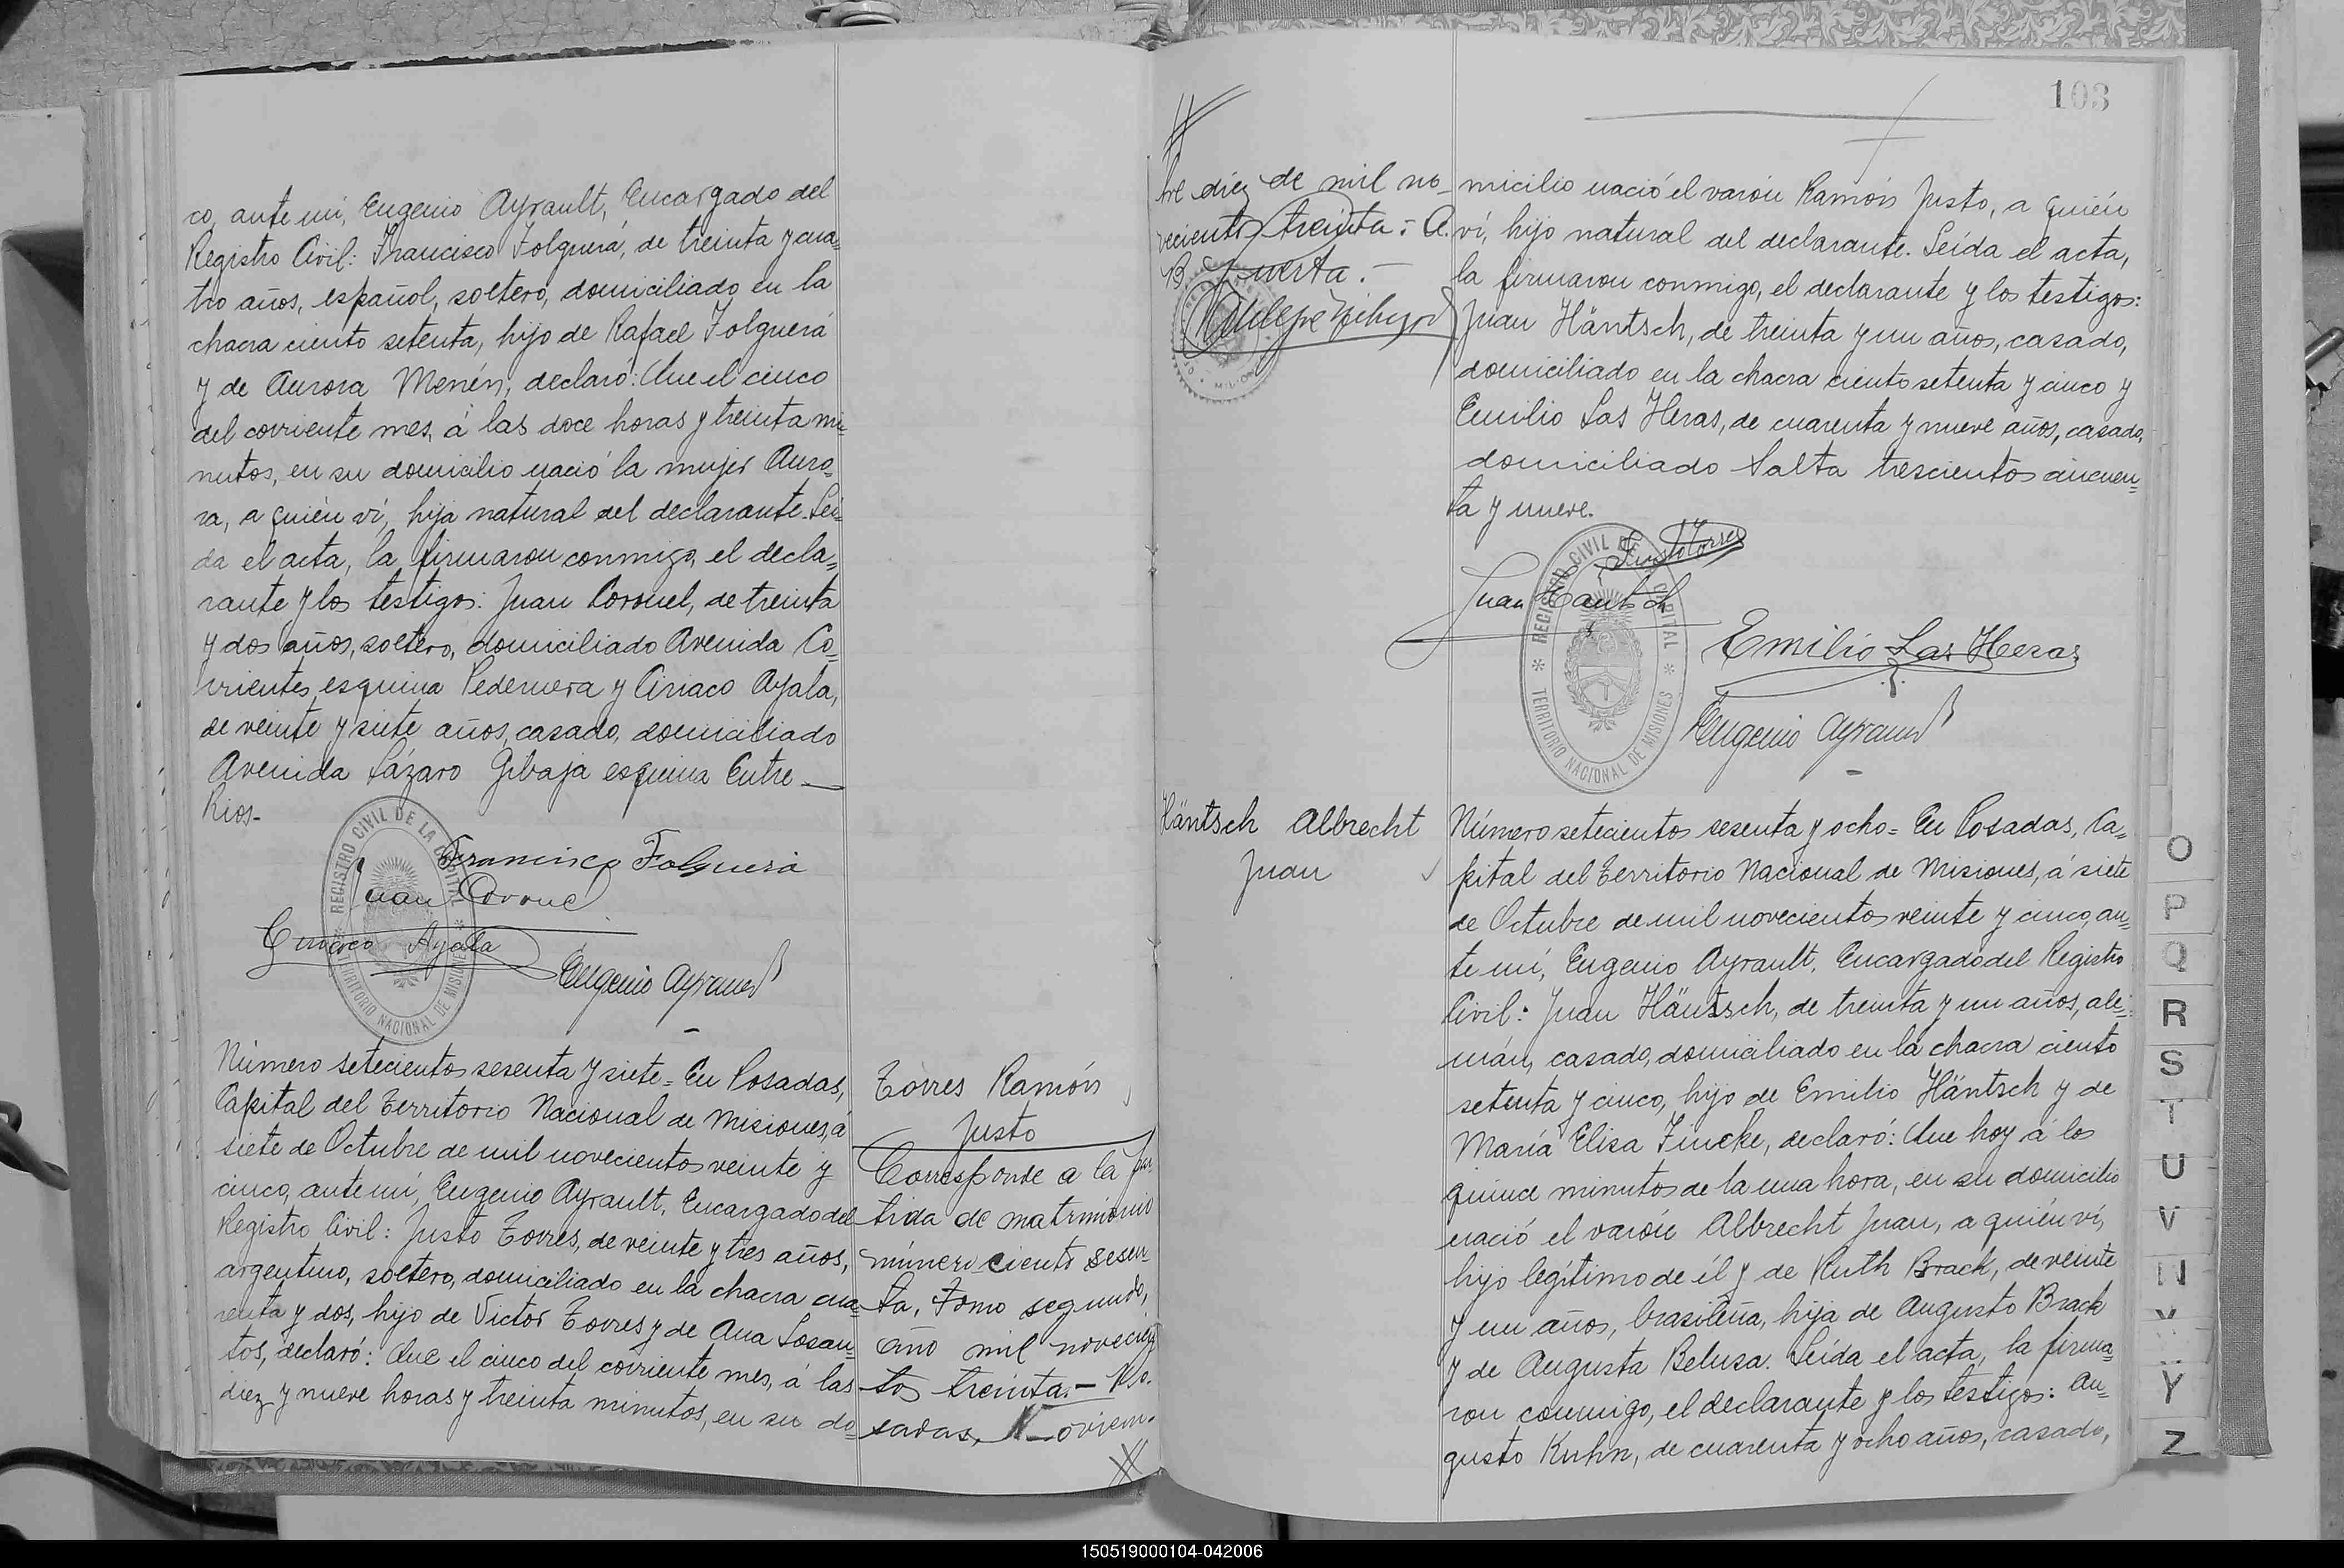 co, ante mi, Eugenio Ayrault, Encargado del
Registro Civil: Francisco Folguerá, de treinta y cua-
tro años, español, soltero, domiciliado en la
chacra ciento setenta, hijo de Rafael Folguerá
y de Aurora Menén, declaró: Que el cinco
del corriente mes, á las doce horas y treinta mi-
nutos, en su domicilio nació la mujer Auro-
ra, a quién ví, hija natural del declarante. Lei-
da el acta, la firmaron conmigo, el decla-
rante y los testigos: Juan Coronel, de treinta
y dos años, soltero, domiciliado Avenida Co-
rrientes esquina Pedernera y Ciriaco Ayala,
de veinte y siete años, casado, domiciliado
Avenida Lázaro Gibaja esquina Entre
Rios-
REGISTRO CIVIL DE LA CAPITAL
TERRITORIO NACIONAL DE MISIONES
Francisco Folguera
Juan Coronel
Ciriaco Ayala
Eugenio Ayrault
Número setecientos sesenta y siete= En Posadas,
Capital del Territorio Nacional de Misiones, á
siete de Octubre de mil novecientos veinte y
cinco, ante mí, Eugenio Ayrault, Encargado del
Registro Civil: Justo Torres, de veinte y tres años,
argentino, soltero, domiciliado en la chacra cua-
renta y dos, hijo de Victor Torres y de Ana Losan-
tos, declaró: Que el cinco del corriente mes, á las
diez y nueve horas y treinta minutos, en su do-
Torres Ramón
Justo
Corresponde a la par
tida de matrimonio
número ciento sesen
ta, tomo segundo,
año mil novecien
tos treinta.- Po.
sadas, Noviem-
103
bre diez de mil no-
vecientos treinta.- A.
B. Puerta.-
micilio nació el varón Ramón Justo, a quién
ví, hijo natural del declarante. Leida el acta,
la firmaron conmigo, el declarante y los testigos:
Juan Häntsch, de treinta y un años, casado,
domiciliado en la chacra ciento setenta y cinco y
Emilio Las Heras, de cuarenta y nueve años, casado,
domiciliado Salta trescientos cincuen-
ta y nueve.
Justo Torres
Juan Häntsch
REGISTRO CIVIL DE LA CAPITAL
TERRITORIO NACIONAL DE MISIONES
Emilio Las Heras
Eugenio Ayrault
Häntsch Albrecht
Juan
Número setecientos sesenta y ocho= En Posadas, Ca-
pital del Territorio Nacional de Misiones, á siete
de Octubre de mil novecientos veinte y cinco, an-
te mí, Eugenio Ayrault, Encargado del Registro
Civil: Juan Häntsch, de treinta y un años, ale-
mán, casado, domiciliado en la chacra ciento
setenta y cinco, hijo de Emilio Häntsch y de
María Elisa Fincke, declaró: Que hoy á los
quince minutos de la una hora, en su domicilio
nació el varón Albrecht Juan, a quién ví,
hijo legítimo de él y de Ruth Brack, de veinte
y un años, brasileña, hija de Augusto Brack
y de Augusta Belusa. Leída el acta, la firma-
ron conmigo, el declarante y los testigos: Au-
gusto Kuhn, de cuarenta y ocho años, casado,
O
P
Q
R
S
T
U
V
Y
Z
150519000104-042006